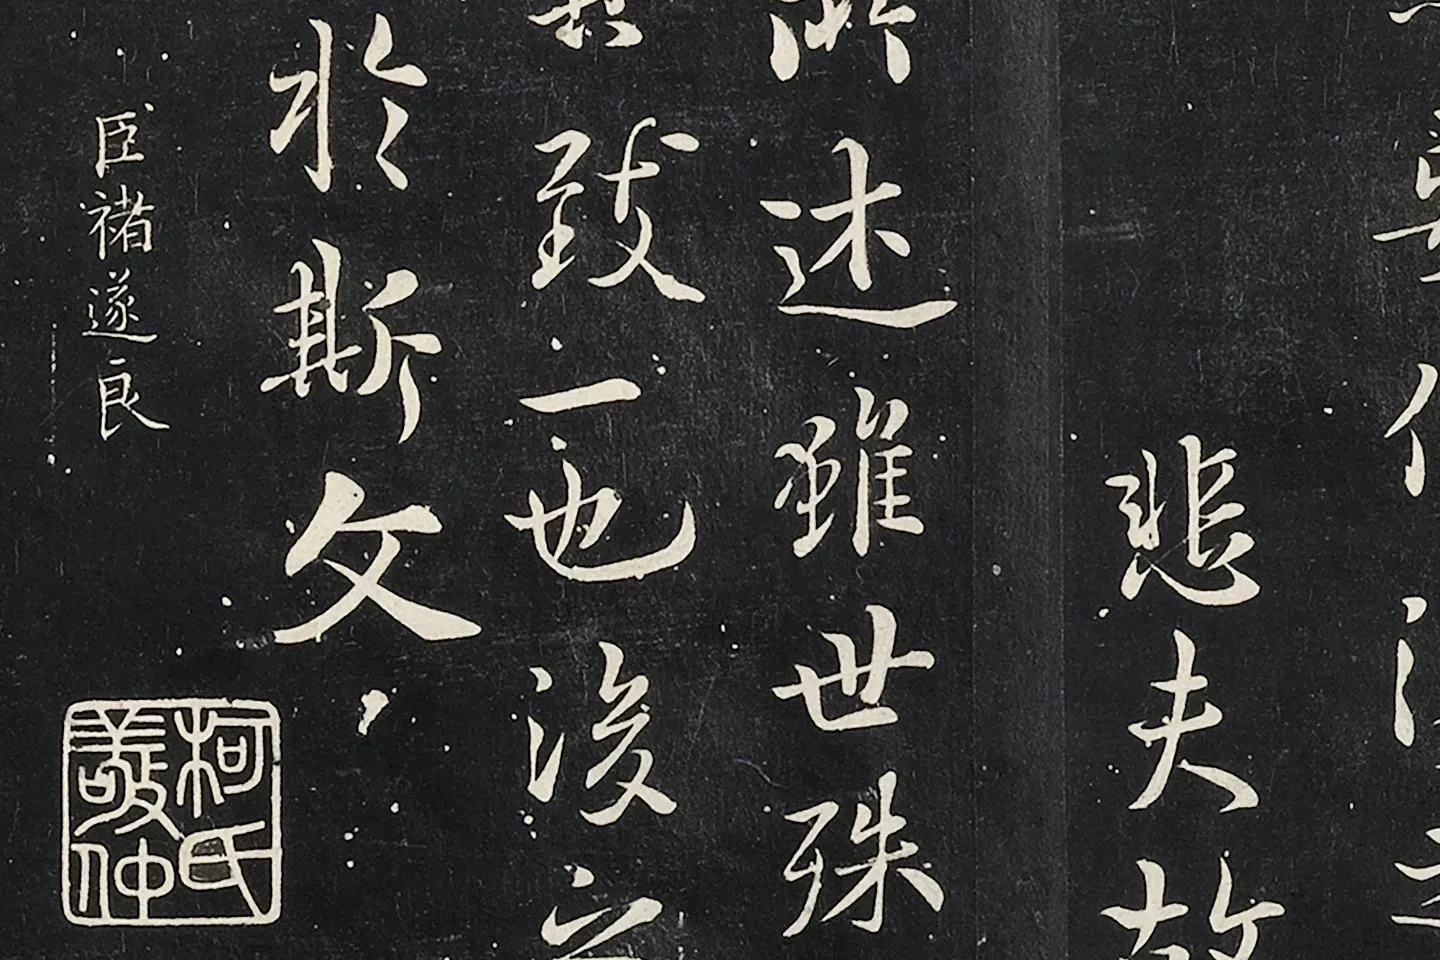 悲夫故
所述雖世殊
其致一也後之
於斯文
臣褚遂良
柯氏
敬仲